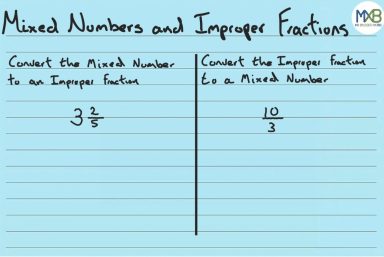 Mixed Numbers and Improper Fractions
MXB
Convert the Mixed Number
to an Improper fraction
3 2/5
Convert the Improper fraction
to a Mixed Number
10/3